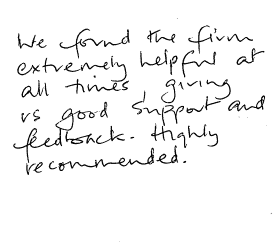 We found the firm
extremely helpful at
all times, giving
us good support and
feedback. Highly
recommended.